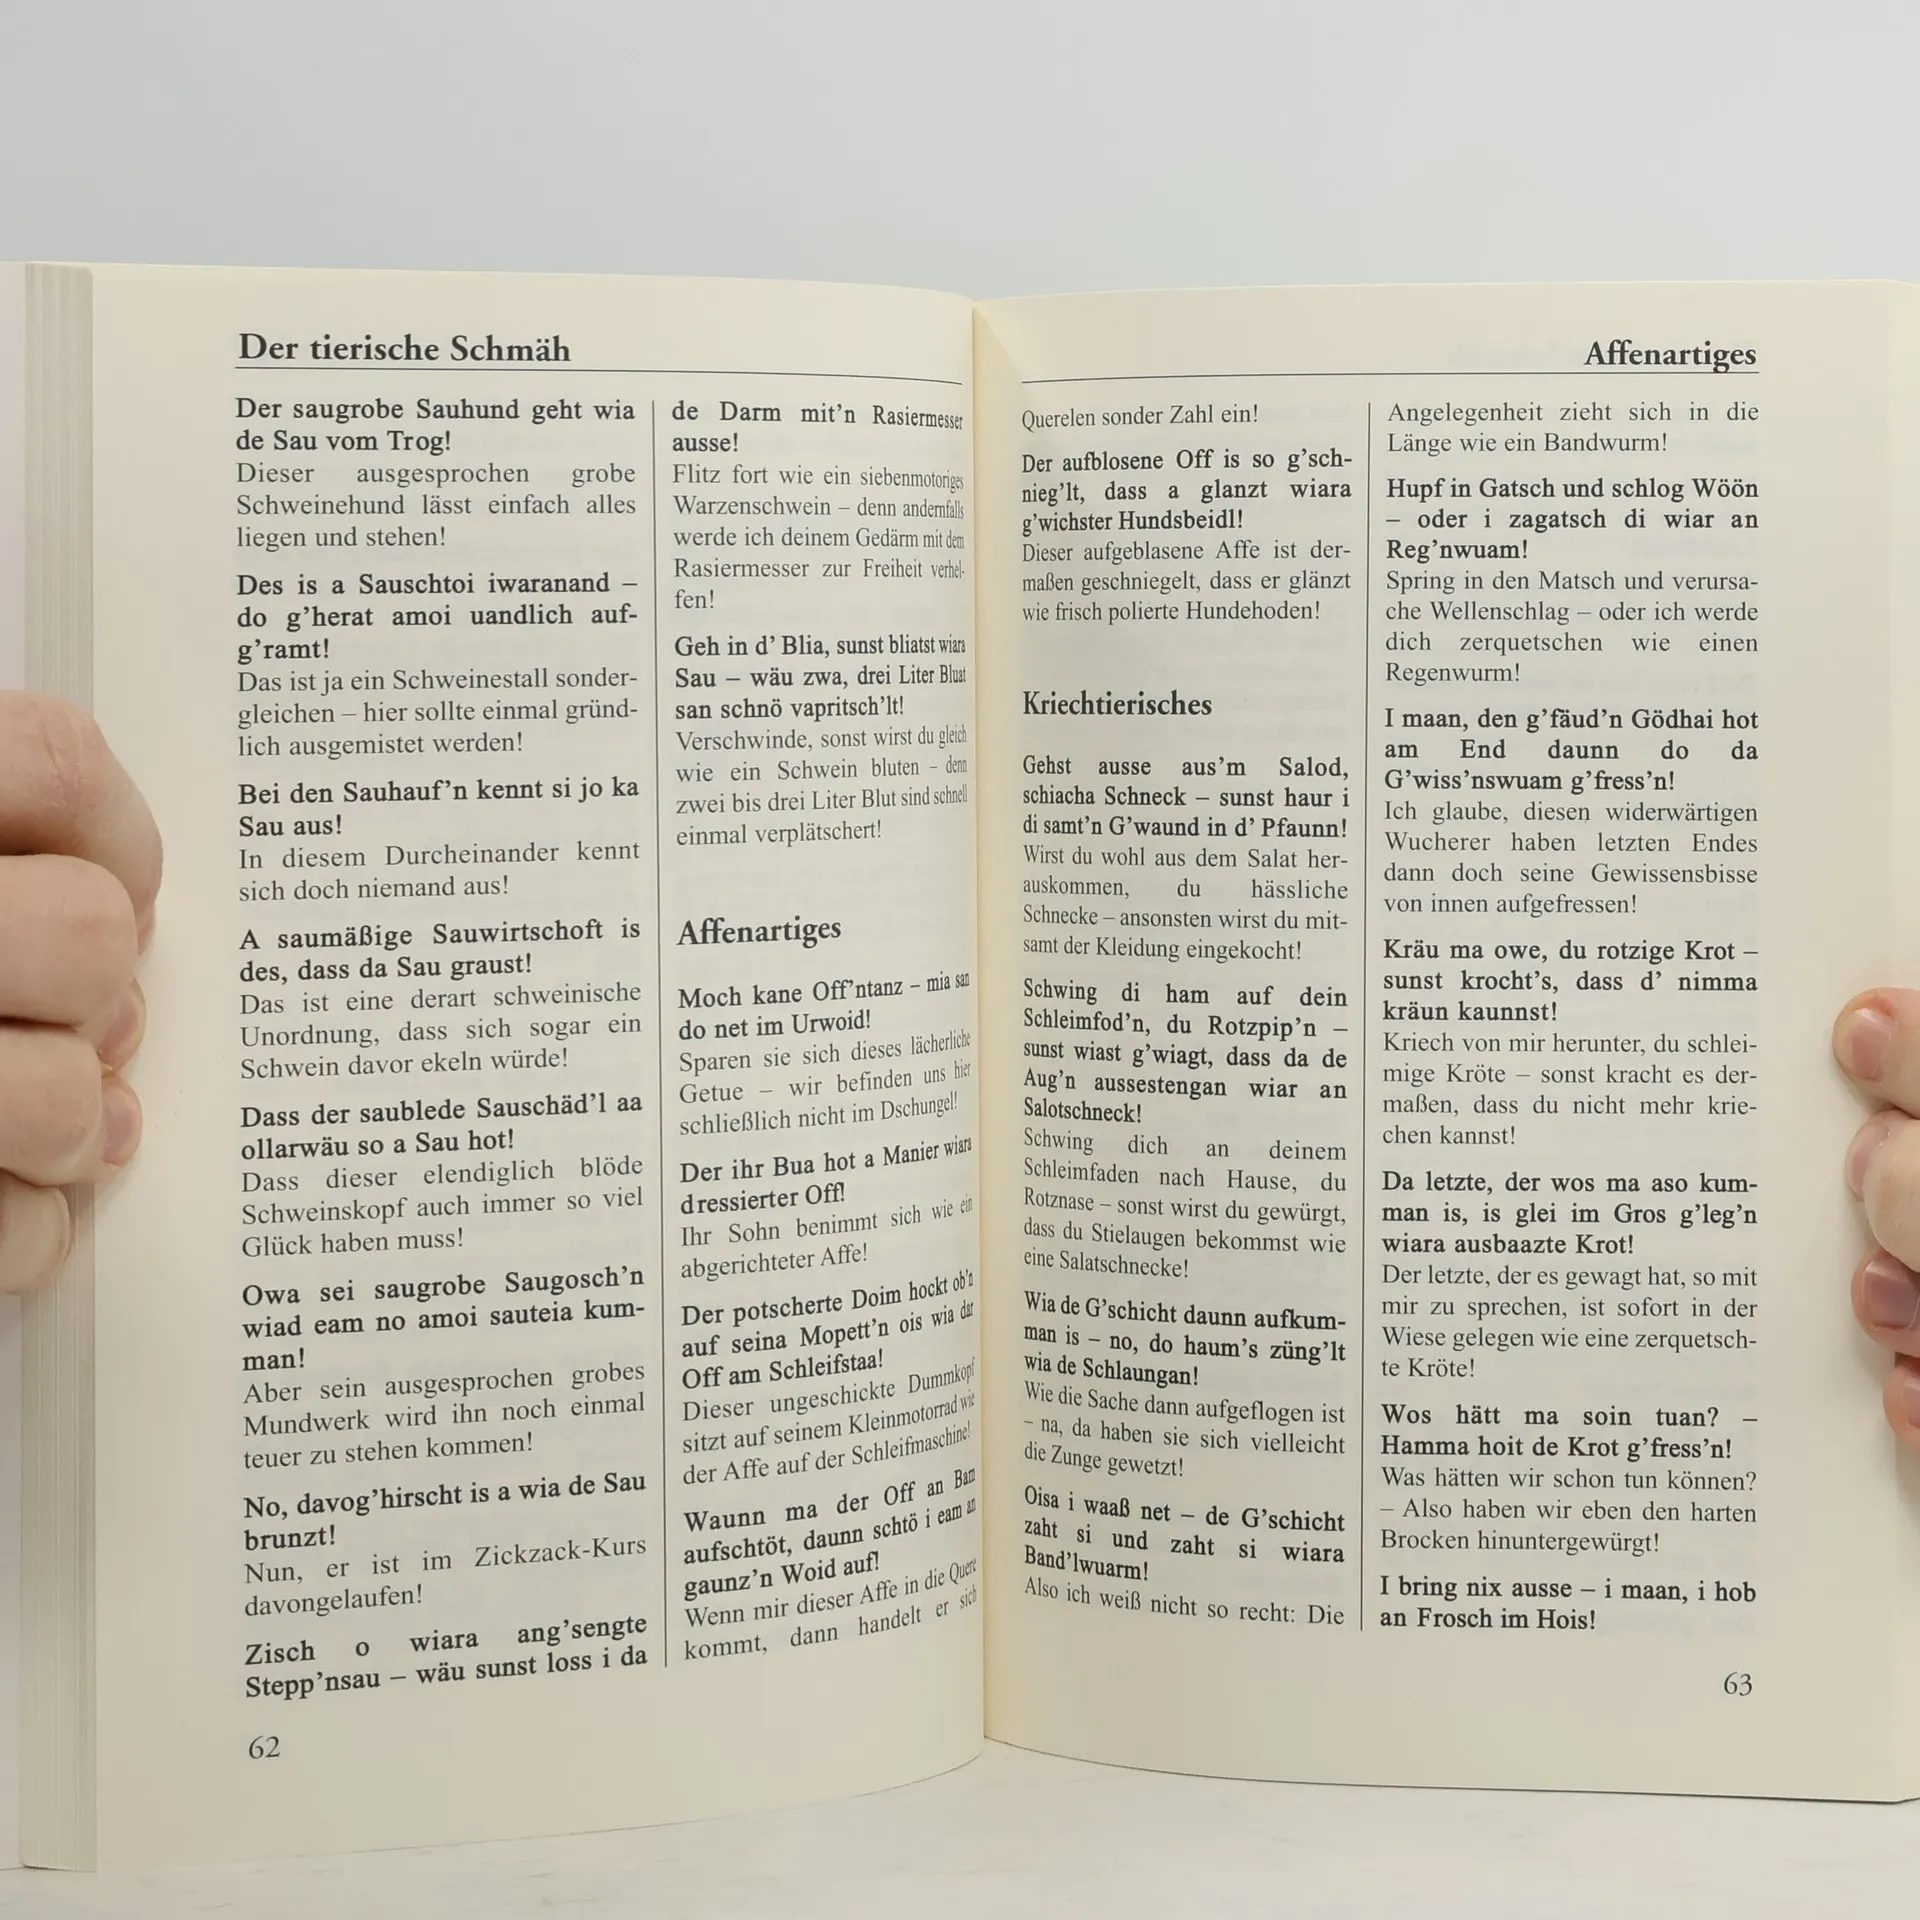 Der tierische Schmäh
Der saugrobe Sauhund geht wia
de Sau vom Trog!
Dieser ausgesprochen grobe
Schweinehund lässt einfach alles
liegen und stehen!
Des is a Sauschtoi iwaranand –
do g’herat amoi uandlich auf-
g’ramt!
Das ist ja ein Schweinestall sonder-
gleichen – hier sollte einmal gründ-
lich ausgemistet werden!
Bei den Sauhauf’n kennt si jo ka
Sau aus!
In diesem Durcheinander kennt
sich doch niemand aus!
A saumäßige Sauwirtschoft is
des, dass da Sau graust!
Das ist eine derart schweinische
Unordnung, dass sich sogar ein
Schwein davor ekeln würde!
Dass der saublede Sauschäd’l aa
ollarwäu so a Sau hot!
Dass dieser elendiglich blöde
Schweinskopf auch immer so viel
Glück haben muss!
Owa sei saugrobe Saugosch’n
wiad eam no amoi sauteia kum-
man!
Aber sein ausgesprochen grobes
Mundwerk wird ihn noch einmal
teuer zu stehen kommen!
No, davog’hirscht is a wia de Sau
brunzt!
Nun, er ist im Zickzack-Kurs
davongelaufen!
Zisch o wiara ang’sengte
Stepp’nsau – wäu sunst loss i da
62
de Darm mit’n Rasiermesser
ausse!
Flitz fort wie ein siebenmotoriges
Warzenschwein – denn andernfalls
werde ich deinem Gedärm mit dem
Rasiermesser zur Freiheit verhel-
fen!
Geh in d’ Blia, sunst bliatst wiara
Sau – wäu zwa, drei Liter Bluat
san schnö vapritsch’lt!
Verschwinde, sonst wirst du gleich
wie ein Schwein bluten – denn
zwei bis drei Liter Blut sind schnell
einmal verplätschert!
Affenartiges
Moch kane Off’ntanz – mia san
do net im Urwoid!
Sparen sie sich dieses lächerliche
Getue – wir befinden uns hier
schließlich nicht im Dschungel!
Der ihr Bua hot a Manier wiara
dressierter Off!
Ihr Sohn benimmt sich wie ein
abgerichteter Affe!
Der potscherte Doim hockt ob’n
auf seina Mopett’n ois wia dar
Off am Schleifstaa!
Dieser ungeschickte Dummkopf
sitzt auf seinem Kleinmotorrad wie
der Affe auf der Schleifmaschine!
Waunn ma der Off an Bam
aufschtöt, daunn schtö i eam an
gaunz’n Woid auf!
Wenn mir dieser Affe in die Quere
kommt, dann handelt er sich
Affenartiges
Querelen sonder Zahl ein!
Der aufblosene Off is so g’sch-
nieg’lt, dass a glanzt wiara
g’wichster Hundsbeidl!
Dieser aufgeblasene Affe ist der-
maßen geschniegelt, dass er glänzt
wie frisch polierte Hundehoden!
Kriechtierisches
Gehst ausse aus’m Salod,
schiacha Schneck – sunst haur i
di samt’n G’waund in d’ Pfaunn!
Wirst du wohl aus dem Salat her-
auskommen, du hässliche
Schnecke – ansonsten wirst du mit-
samt der Kleidung eingekocht!
Schwing di ham auf dein
Schleimfod’n, du Rotzpip’n –
sunst wiast g’wiagt, dass da de
Aug’n aussestengan wiar an
Salotschneck!
Schwing dich an deinem
Schleimfaden nach Hause, du
Rotznase – sonst wirst du gewürgt,
dass du Stielaugen bekommst wie
eine Salatschnecke!
Wia de G’schicht daunn aufkum-
man is – no, do haum’s züng’lt
wia de Schlaungan!
Wie die Sache dann aufgeflogen ist
– na, da haben sie sich vielleicht
die Zunge gewetzt!
Oisa i waaß net – de G’schicht
zaht si und zaht si wiara
Band’lwuarm!
Also ich weiß nicht so recht: Die
Angelegenheit zieht sich in die
Länge wie ein Bandwurm!
Hupf in Gatsch und schlog Wöön
– oder i zagatsch di wiar an
Reg’nwuam!
Spring in den Matsch und verursa-
che Wellenschlag – oder ich werde
dich zerquetschen wie einen
Regenwurm!
I maan, den g’fäud’n Gödhai hot
am End daunn do da
G’wiss’nswuam g’fress’n!
Ich glaube, diesen widerwärtigen
Wucherer haben letzten Endes
dann doch seine Gewissensbisse
von innen aufgefressen!
Kräu ma owe, du rotzige Krot –
sunst krocht’s, dass d’ nimma
kräun kaunnst!
Kriech von mir herunter, du schlei-
mige Kröte – sonst kracht es der-
maßen, dass du nicht mehr krie-
chen kannst!
Da letzte, der wos ma aso kum-
man is, is glei im Gros g’leg’n
wiara ausbaazte Krot!
Der letzte, der es gewagt hat, so mit
mir zu sprechen, ist sofort in der
Wiese gelegen wie eine zerquetsch-
te Kröte!
Wos hätt ma soin tuan? –
Hamma hoit de Krot g’fress’n!
Was hätten wir schon tun können?
– Also haben wir eben den harten
Brocken hinuntergewürgt!
I bring nix ausse – i maan, i hob
an Frosch im Hois!
63